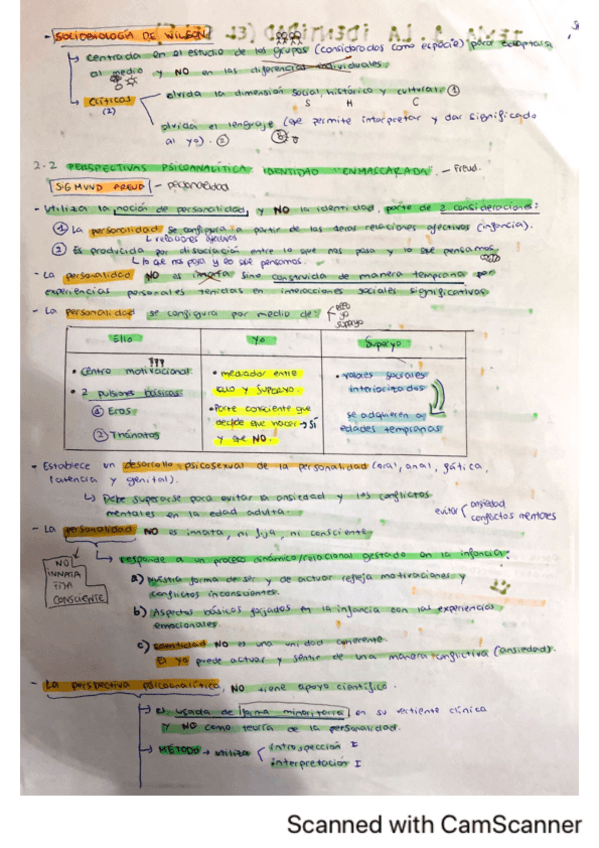 - SOCIOBIOLOGÍA DE WILSON
↳ centrada en el estudio de los grupos (considerados como especie) para adaptarse
al medio y NO en las diferencias individuales.
↳ Críticas
(2)
olvida la dimensión social, histórica y cultural. ①
S H C
olvida el lenguaje (que permite interpretar y dar significado
al yo). ②
2.2 PERSPECTIVAS PSICOANALÍTICA. IDENTIDAD "ENMASCARADA". - Freud.
SIGMUND FREUD - personalidad
- Utiliza la noción de personalidad y NO la identidad, parte de 2 consideraciones:
① La personalidad se configura a partir de las relaciones afectivas (infancia).
↳ relaciones afectivas
② Es producida por disociación entre lo que nos pasa y lo que pensamos.
↳ lo que nos pasa y lo que pensamos.
- La personalidad NO es innata sino construida de manera temprana por
experiencias personales tenidas en interacciones sociales significativas.
- La personalidad se configura por medio de:
ello
yo
superyo
Ello
Yo
Superyo
• Centro motivacional
• 2 pulsiones básicas
① Eros
② Thánatos
• mediador entre
ELLO y SUPERYO.
• Parte consciente que
decide que hacer → SÍ
y que NO.
• valores sociales
interiorizados
se adquieren en
edades tempranas
- Establece un desarrollo psicosexual de la personalidad (oral, anal, fálica,
latencia y genital).
↳ Debe superarse para evitar la ansiedad y los conflictos
mentales en la edad adulta.
evitar
ansiedad
conflictos mentales
- La personalidad NO es innata, ni fija, ni consciente.
NO
INNATA
FIJA
CONSCIENTE
↳ responde a un proceso dinámico/relacional gestado en la infancia:
a) Nuestra forma de ser y de actuar refleja motivaciones y
conflictos inconscientes.
b) Aspectos básicos forjados en la infancia con las experiencias
emocionales.
c) identidad NO es una unidad coherente.
El yo puede actuar y sentir de una manera conflictiva (ansiedad).
- La perspectiva psicoanalítica, NO tiene apoyo científico.
→ es usada de forma minoritaria en su vertiente clínica
y NO como teoría de la personalidad.
→ MÉTODO → utiliza
introspección I
interpretación I
Scanned with CamScanner